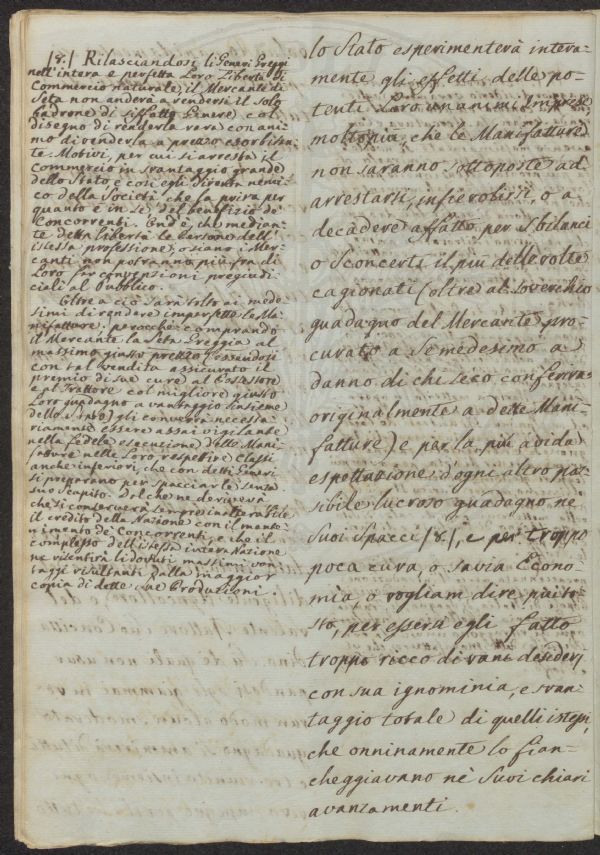 /8./ Rilasciandosi li Generi Greggi
nell'intera e perfetta Loro Libertà di
Commercio naturale, il Mercante di
Seta non anderà a rendersi il solo
padrone di siffatto Genere, col
disegno di renderla rara con ani-
mo di venderla a prezzo esorbitan-
te. Motivi, per cui si arresta il
Commercio in svantaggio grande
dello Stato, e così egli diventa nemi-
co della Società, che fa priva per
quanto è in Se, del benefizio de'
Concorrenti. Ond'è, che median-
te detta Libertà le Persone dell'
istessa professione, o siano i Mer-
canti non potranno più fra di
Loro far convenzioni pregiudi-
ciali al Pubblico.
Oltre a ciò sarà tolto ai mede-
simi di rendere imperfette le Ma-
nifatture; perocchè comprando
il Mercante la Seta Greggia al
massimo giusto prezzo (essendosi
con tal vendita assicurato il
premio di sue cure al Possessore
e al Trattore col migliore giusto
Loro guadagno a vantaggio insieme
dello Stato) gli converrà necessa-
riamente essere assai vigilante
nella fedele esecuzione delle Mani-
fatture nelle Loro respettive Classi
anche inferiori, che con detti Generi
si preparano per spacciarle senza
suo scapito. Dal che ne deriverà
che si conserverà sempre inalterabile
il credito della Nazione con il mante-
nimento de' Concorrenti, e che il
complesso dell'istessa intera Nazione
ne risentirà li dovuti massimi van-
taggi risultanti dalla maggior
copia di dette sue Produzioni.
lo Stato esperimenterà intera-
mente gli effetti delle po-
tenti Loro unanimi Imprese,
moltopiù, che le Manifatture
non saranno sottoposte ad
arrestarsi, infievolirsi, o a
decadere affatto per Sbilanci
o Sconcerti il più delle volte
cagionati (oltre al soverchio
guadagno del Mercante pro-
curato a Se medesimo a
danno di chi seco conferiva
originalmente a dette Mani-
fatture) e per la più avida
espettazione d'ogni altro pos-
sibile lucroso guadagno ne'
Suoi Spacci /8/, e per troppo
poca cura, o savia Econo-
mia, o vogliam dire piutto-
sto, per essersi egli fatto
troppo ricco di vani desideri
con sua ignominia, e svan-
taggio totale di quelli istessi,
che onninamente lo fian-
cheggiavano ne' Suoi chiari
avanzamenti.